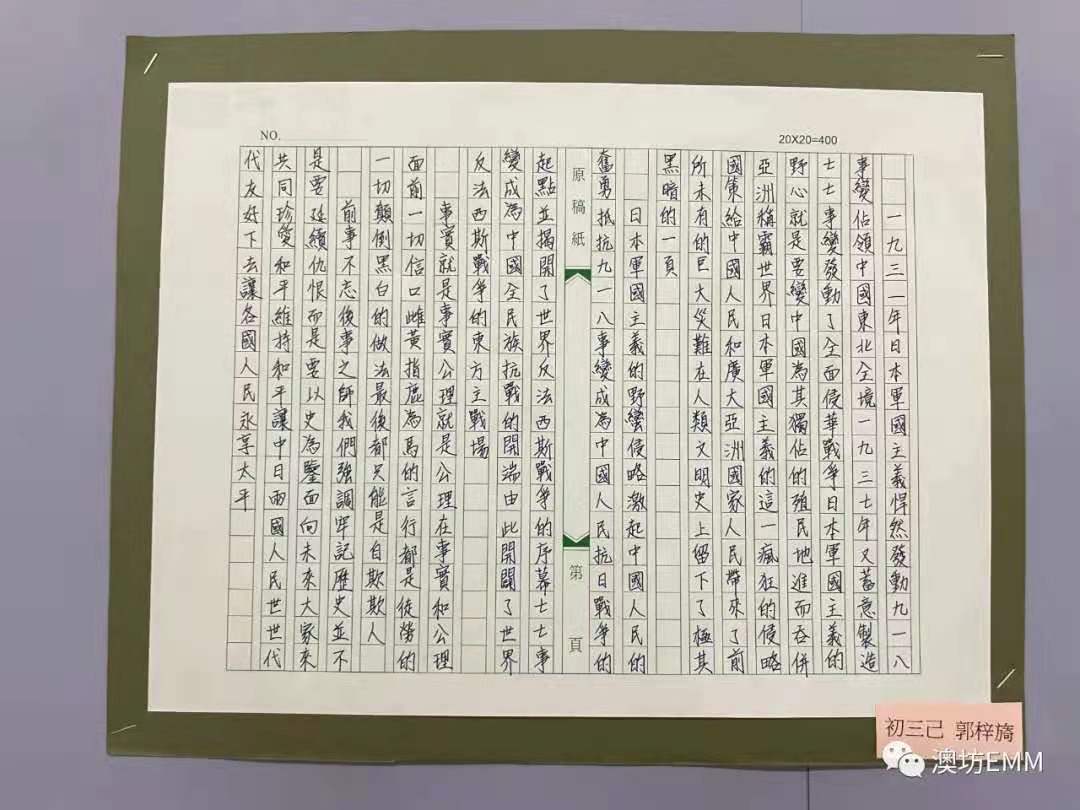 NO.
20X20=400
一九三一年日本軍國主義悍然發動九一八
事變佔領中國東北全境一九三七年又蓄意製造
七七事變發動了全面侵華戰爭日本軍國主義的
野心就是要變中國為其獨佔的殖民地進而吞併
亞洲稱霸世界日本軍國主義的這一瘋狂的侵略
國策給中國人民和廣大亞洲國家人民帶來了前
所未有的巨大災難在人類文明史上留下了極其
黑暗的一頁
日本軍國主義的野蠻侵略激起中國人民的
奮勇抵抗九一八事變成為中國人民抗日戰爭的
原稿紙
第 頁
起點並揭開了世界反法西斯戰爭的序幕七七事
變成為中國全民族抗戰的開端由此開闢了世界
反法西斯戰爭的東方主戰場
事實就是事實公理就是公理在事實和公理
面前一切信口雌黃指鹿為馬的言行都是徒勞的
一切顛倒黑白的做法最後都只能是自欺欺人
前事不忘後事之師我們強調牢記歷史並不
是要延續仇恨而是要以史為鑒面向未來大家來
共同珍愛和平維持和平讓中日兩國人民世世代
代友好下去讓各國人民永享太平
初三己 郭梓旖
澳坊EMM